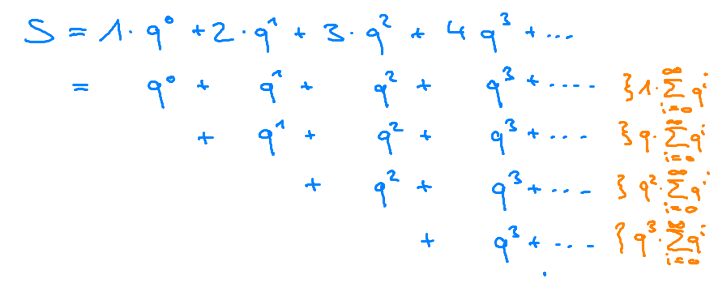 S = 1·q⁰ + 2·q¹ + 3·q² + 4q³ + ...
= q⁰ + q¹ + q² + q³ + .... } 1·∑_{i=0}^{∞} qⁱ
+ q¹ + q² + q³ + ... } q·∑_{i=0}^{∞} qⁱ
+ q² + q³ + ... } q²·∑_{i=0}^{∞} qⁱ
+ q³ + ... } q³·∑_{i=0}^{∞} qⁱ